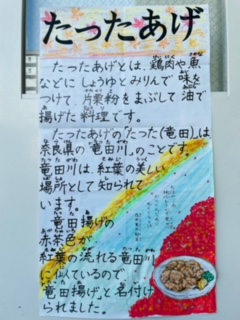 たったあげ
たったあげとは、鶏肉や魚
などにしょうゆとみりんで味を
つけて、片栗粉をまぶして油で
揚げた料理です。
たったあげの「たった(竜田)」は
奈良県の「竜田川」のことです。
竜田川は、紅葉の美しい
場所として知られて
います。
竜田揚げの
赤茶色が
紅葉の流れる竜田川
に似ているので
「竜田揚げ」と名付け
られました。